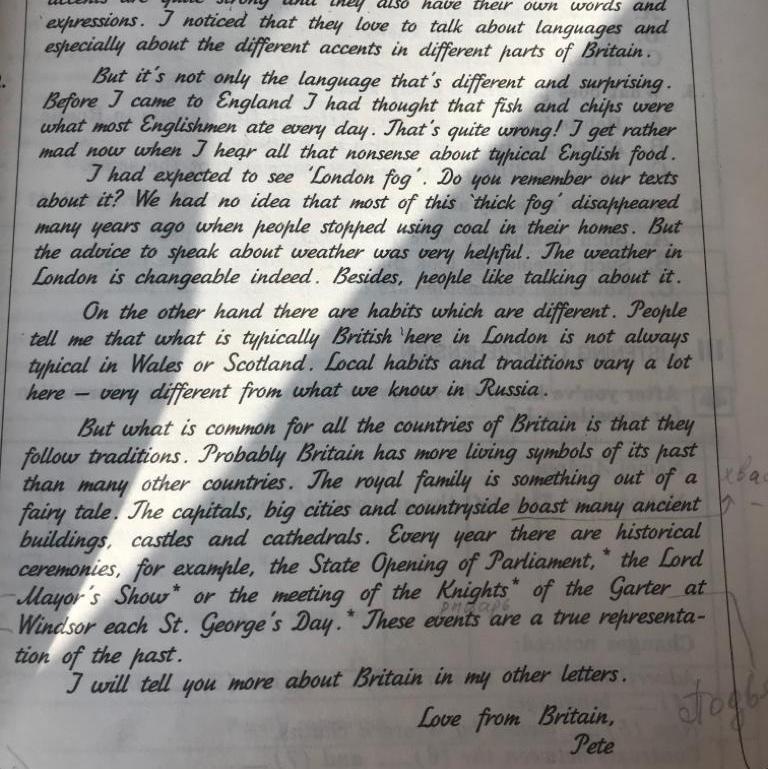 accents are quite strong and they also have their own words and
expressions. I noticed that they love to talk about languages and
especially about the different accents in different parts of Britain.
But it's not only the language that's different and surprising.
Before I came to England I had thought that fish and chips were
what most Englishmen ate every day. That's quite wrong! I get rather
mad now when I hear all that nonsense about typical English food.
I had expected to see 'London fog'. Do you remember our texts
about it? We had no idea that most of this 'thick fog' disappeared
many years ago when people stopped using coal in their homes. But
the advice to speak about weather was very helpful. The weather in
London is changeable indeed. Besides, people like talking about it.
On the other hand there are habits which are different. People
tell me that what is typically British here in London is not always
typical in Wales or Scotland. Local habits and traditions vary a lot
here — very different from what we know in Russia.
But what is common for all the countries of Britain is that they
follow traditions. Probably Britain has more living symbols of its past
than many other countries. The royal family is something out of a
fairy tale. The capitals, big cities and countryside boast many ancient
buildings, castles and cathedrals. Every year there are historical
ceremonies, for example, the State Opening of Parliament,* the Lord
Mayor's Show* or the meeting of the Knights* of the Garter at
рыцарь
Windsor each St. George's Day.* These events are a true representa-
tion of the past.
I will tell you more about Britain in my other letters.
Love from Britain,
Pete